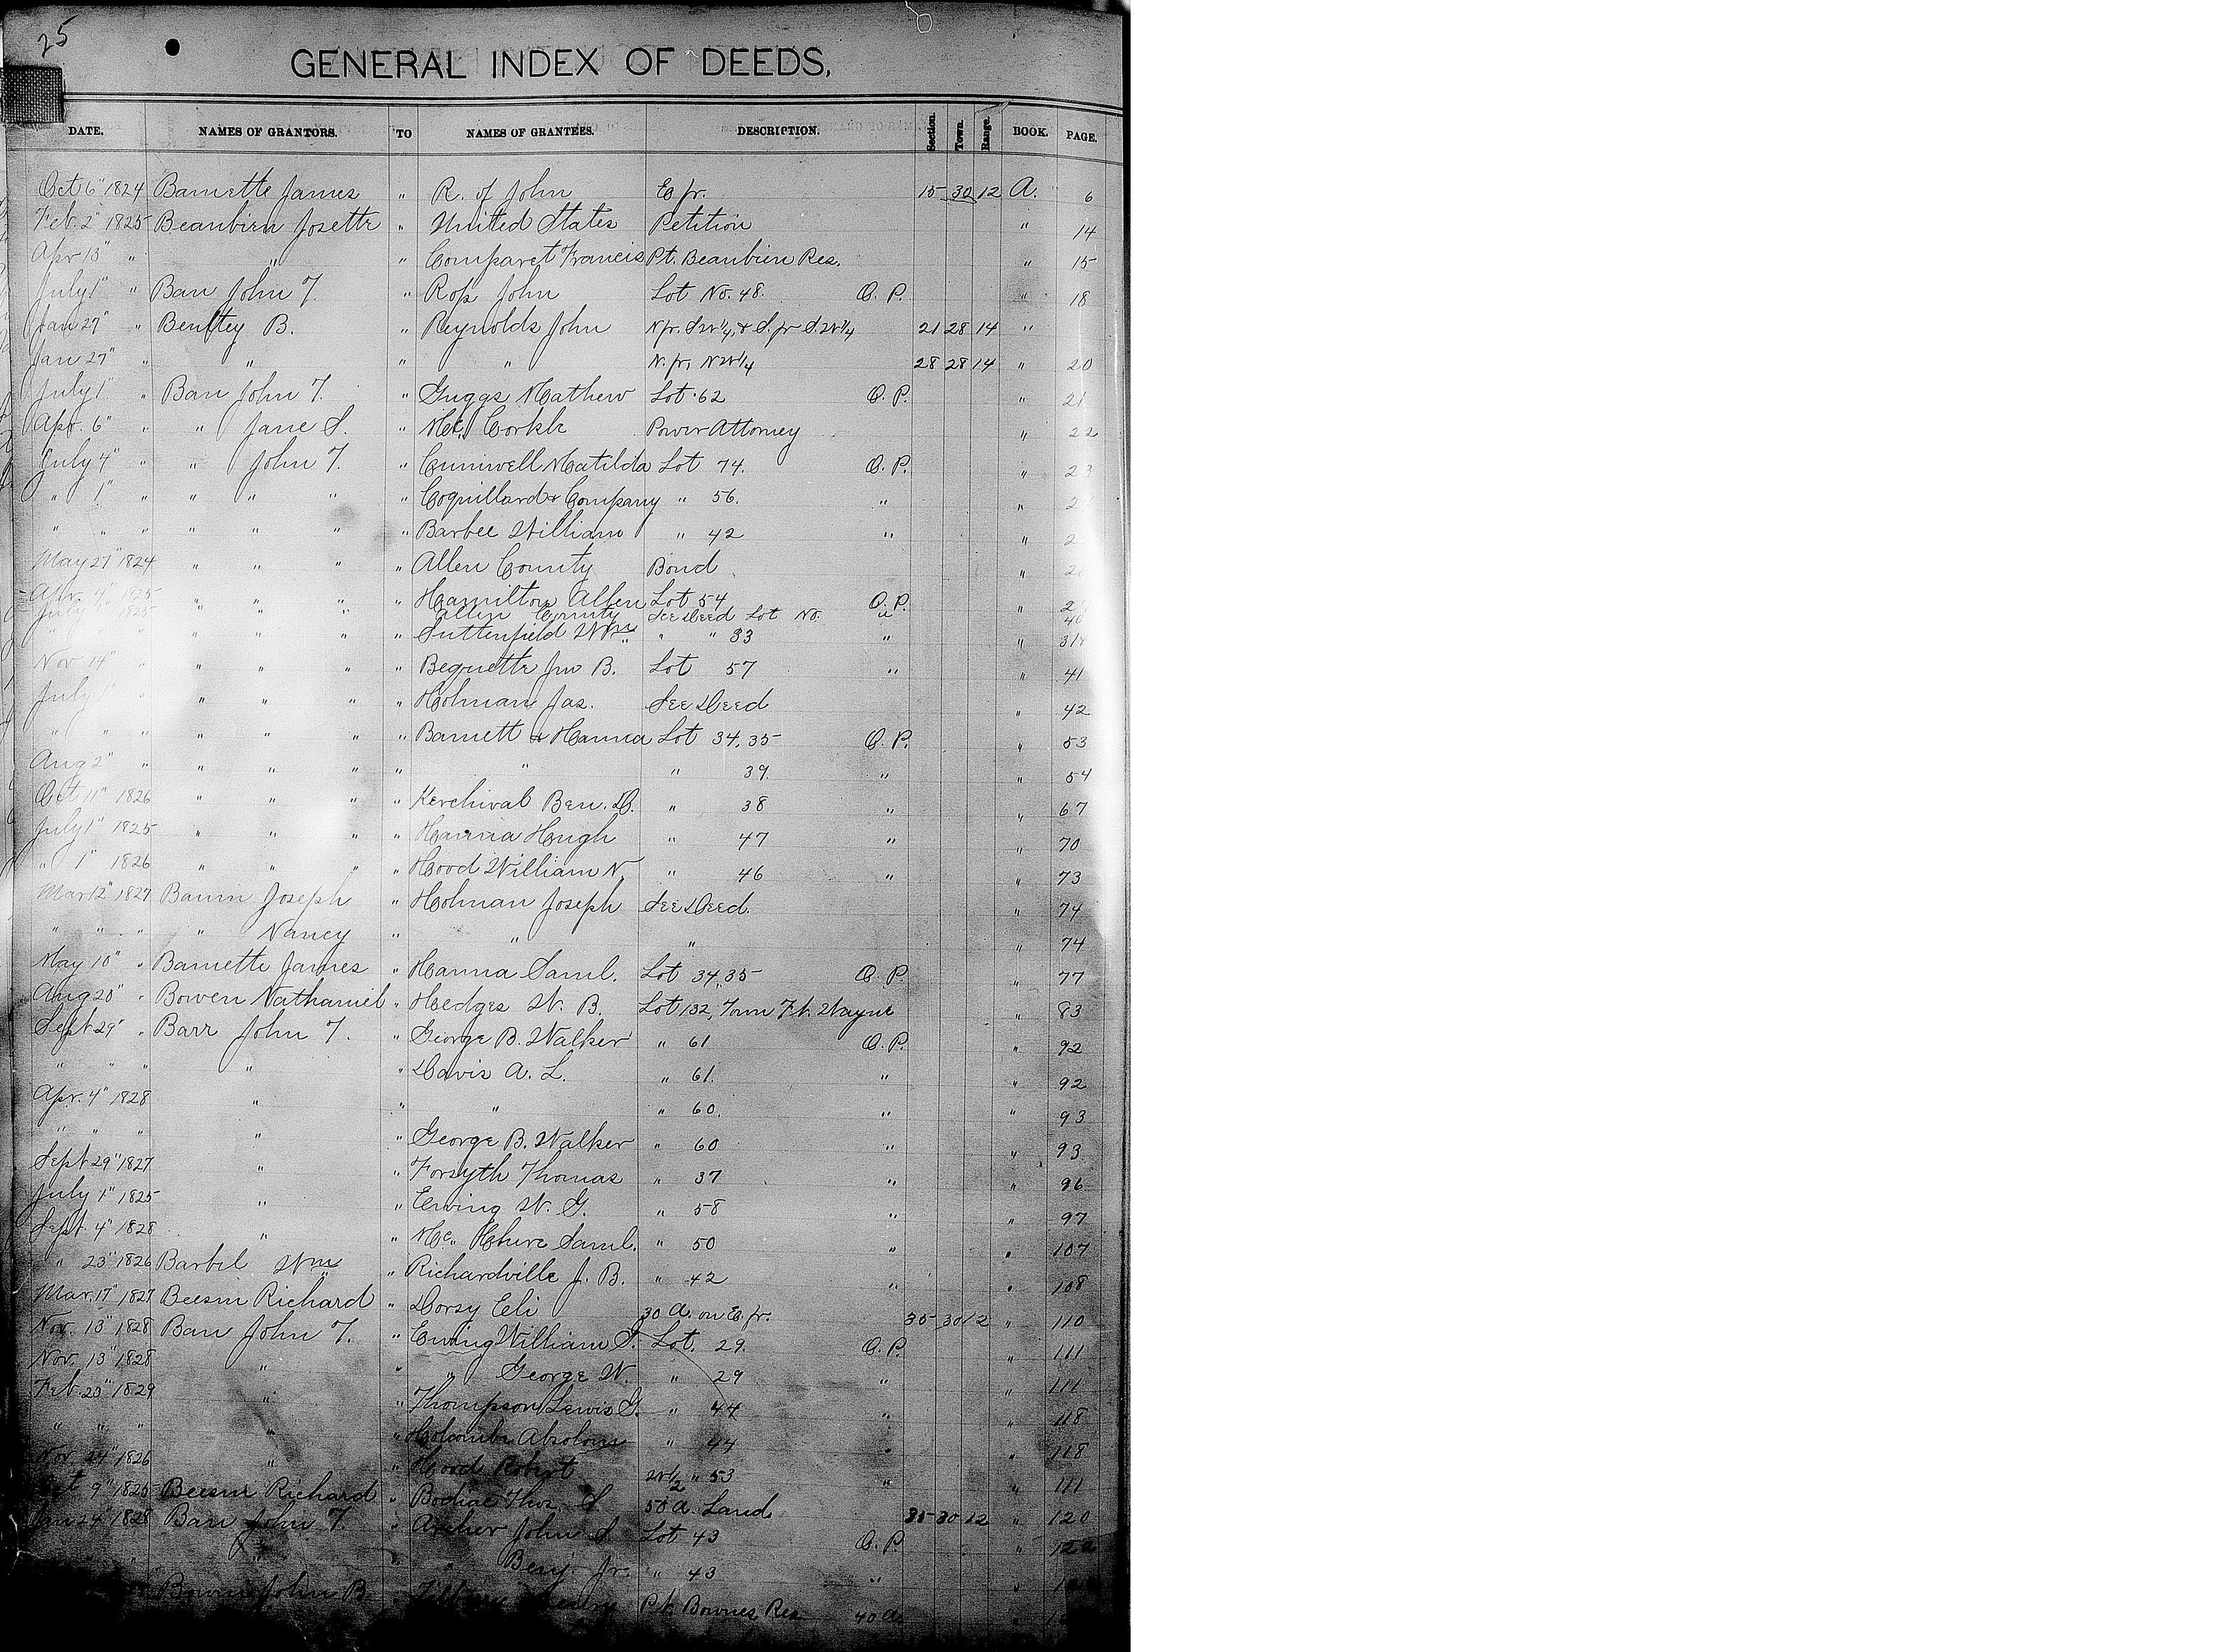 25
GENERAL INDEX OF DEEDS,
DATE. NAMES OF GRANTORS. TO NAMES OF GRANTEES. DESCRIPTION. Section. Town. Range. BOOK. PAGE.
Oct 6" 1824 Barnette James " R. of John E fr. 15 30 12 A. 6
Feb. 2" 1825 Beaubien Josette " United States Petition " 14
Apr 13" " " " Comparet Francis Pt. Beaubien Res. " 15
July 1" " Barr John T. " Ross John Lot No. 48. O. P. " 18
Jan 27" " Bentley B. " Reynolds John N fr. SW 1/4, & S. fr S.W 1/4 21 28 14 "
Jan 27" " " " " N. fr, NW 1/4 28 28 14 " 20
July 1" " Barr John T. " Griggs Mathew Lot 62 O. P. " 21
Apr. 6" " " Jane S. " Mc Corkle Power Attorney " 22
July 4" " " John T. " Cuniwell Matilda Lot 74. O. P. " 23
" 1" " " " " " Coquillard & Company " 56. " "
" " " " " " " Barbee William " 42 " "
May 27" 1824 " " " " Allen County Bond "
Apr. 4" 1825 " " " " Hamilton Allen Lot 54 O. P. "
July 1" 1825 Allen County See Deed Lot No. " 40
" " " " " " " Suttenfield Wm " " 33 " "
Nov 14" " " " " " Bequette Jno B. Lot 57 " " 41
July 1" " " " " " Holman Jas. See Deed " 42
" " " " " " " Barnett & Hanna Lot 34, 35 O. P. " 53
Aug 2" " " " " " " " 39. " " 54
Oct 11" 1826 " " " " Kerchival Ben. D. " 38 " " 67
July 1" 1825 " " " " Hanna Hugh " 47 " " 70
" 1" 1826 " " " " Hood William N. " 46 " " 73
Mar 12" 1827 Baum Joseph " Holman Joseph See Deed. " 74
" " " " Nancy " " " " 74
May 10" " Barnette James " Hanna Saml. Lot 34, 35 O. P. " 77
Aug 20" " Bowen Nathaniel " Hedges W. B. Lot 132, Town Ft. Wayne " 83
Sept 29" " Barr John T. " George B. Walker " 61 O. P. " 92
" " " " " Davis A. L. " 61. " " 92
Apr. 4" 1828 " " " " 60. " " 93
" " " " " George B. Walker " 60 " " 93
Sept 29" 1827 " " Forsyth Thomas " 37 " " 96
July 1" 1825 " " Ewing W. G. " 58 " " 97
Sept. 4" 1828 " " Mc Saml. " 50 " " 107
" 23" 1826 Barbee Wm " Richardville J. B. " 42 " " 108
Mar. 17" 1827 Beeson Richard " Dorsy Eli 30 A. on E. fr. 35 30 12 " 110
Nov. 13" 1828 Barr John T. " Ewing William G. Lot. 29. O. P. " 111
Nov. 13" 1828 " " " George W. " 29 " " 111
Feb. 20" 1829 " " Thompson Lewis G. " 44 " " 118
" " " " " Holcomb Absolom " 44 " " 118
Nov. 24" 1826 " " Hood Robert W 1/2 " 53 " " 111
Oct 9" 1825 Beeson Richard " Thos. S 50 A. Land 35 30 12 " 120
Jan 24" 1828 Barr John T. " Archer John S. Lot 43 O. P. " 122
" " " " " " Benj. Jr. " 43 " "
John B. " Henry Pt. Bownes Res 40 A. "